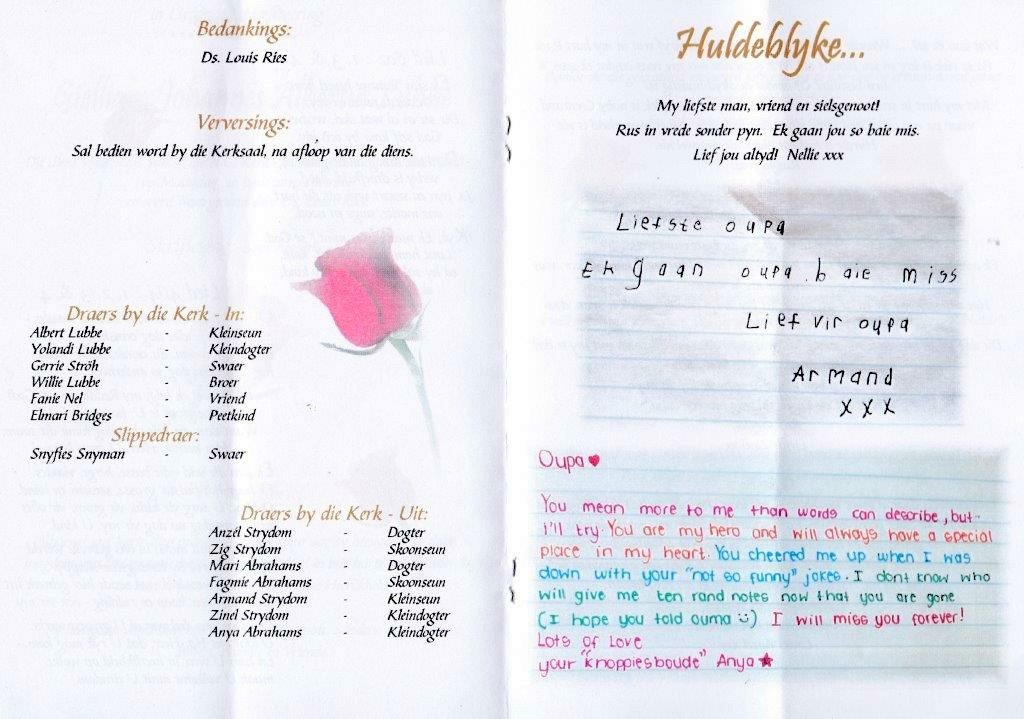 Bedankings:
Ds. Louis Ries
Verversings:
Sal bedien word by die Kerksaal, na afloop van die diens.
Draers by die Kerk - In:
Albert Lubbe - Kleinseun
Yolandi Lubbe - Kleindogter
Gerrie Ströh - Swaer
Willie Lubbe - Broer
Fanie Nel - Vriend
Elmari Bridges - Peetkind
Slippedraer:
Snyfles Snyman - Swaer
Draers by die Kerk - Uit:
Anzél Strydom - Dogter
Zig Strydom - Skoonseun
Mari Abrahams - Dogter
Fagmie Abrahams - Skoonseun
Armand Strydom - Kleinseun
Zinel Strydom - Kleindogter
Anya Abrahams - Kleindogter
Huldeblyke...
My liefste man, vriend en sielsgenoot!
Rus in vrede sonder pyn. Ek gaan jou so baie mis.
Lief jou altyd! Nellie xxx
Liefste oupa
Ek gaan oupa baie miss
Lief vir oupa
Armand
xxx
Oupa ♥
You mean more to me than words can describe, but
i'll try. You are my hero and will always have a special
place in my heart. You cheered me up when I was
down with your "not so funny" jokes. I dont know who
will give me ten rand notes now that you are gone
(I hope you told ouma ☺) I will miss you forever!
Lots of Love
your "knoppiesboude" Anya ★